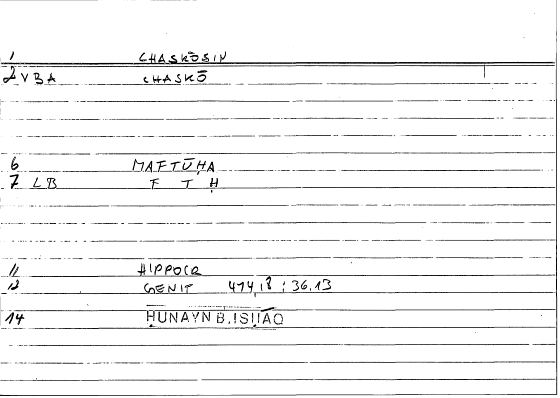 1 CHASKŌSIN
2 VBA CHASKŌ
6 MAFTŪḤA
7 LB F T Ḥ
11 HIPPOCR
12 GENIT 474,8 ; 36.13
14 ḤUNAYN B.ISḤĀQ